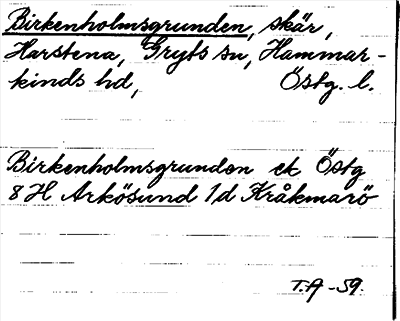 Birkenholmsgrunden, skär,
Harstena, Gryts sn, Hammar-
kinds hd, Östg. l.
Birkenholmsgrunden ek Östg
8 H Arkösund 1d Kråkmarö
T.A -59.